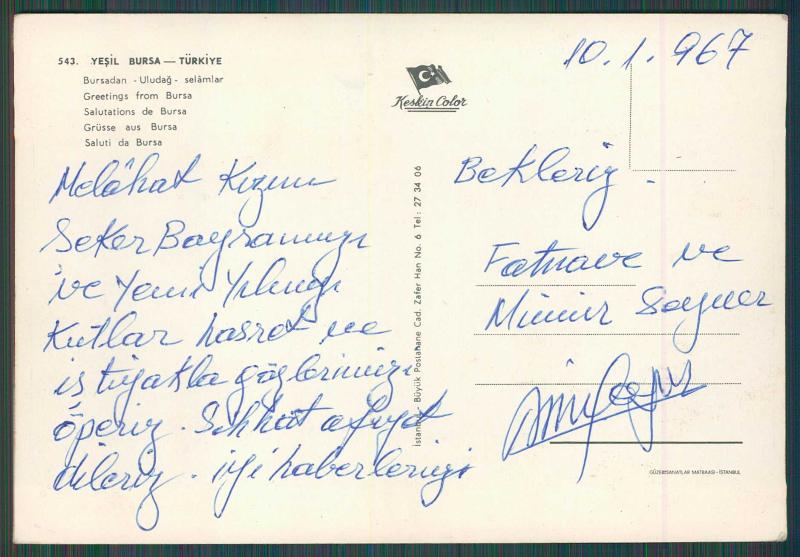 543. YEŞİL BURSA — TÜRKİYE
Bursadan - Uludağ - selâmlar
Greetings from Bursa
Salutations de Bursa
Grüsse aus Bursa
Saluti da Bursa
Keskin Color
10.1.967
Melâhat Kızım
Şeker Bayramınızı
ve Yeni Yılınızı
Kutlar hasret ve
iştiyakla gözlerinizi
öperiz. Sıhhat afiyet
dileriz. iyi haberlerinizi
Bekleriz.
ve
İstanbul - Büyük Postahane Cad. Zafer Han No. 6 Tel: 27 34 06
GÜZELSANATLAR MATBAASI - İSTANBUL